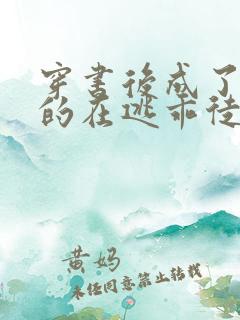 穿書後成了
的在逃乖徒
黄妈
未经同意禁止转载